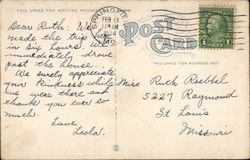 THIS SPACE FOR WRITING MESSAGES
POST CARD
THIS SPACE FOR ADDRESS ONLY
SPRINGFIELD
FEB 13
MO.
Dear Ruth: We
made the trip in
six hours. We
immediately drove
past the house.
We surely appreciate
your kindness while
we were there and
thank you ever so
much.
Love,
Leola.
Miss Ruth Raebbel
5227 Raymond
St Louis
Missouri